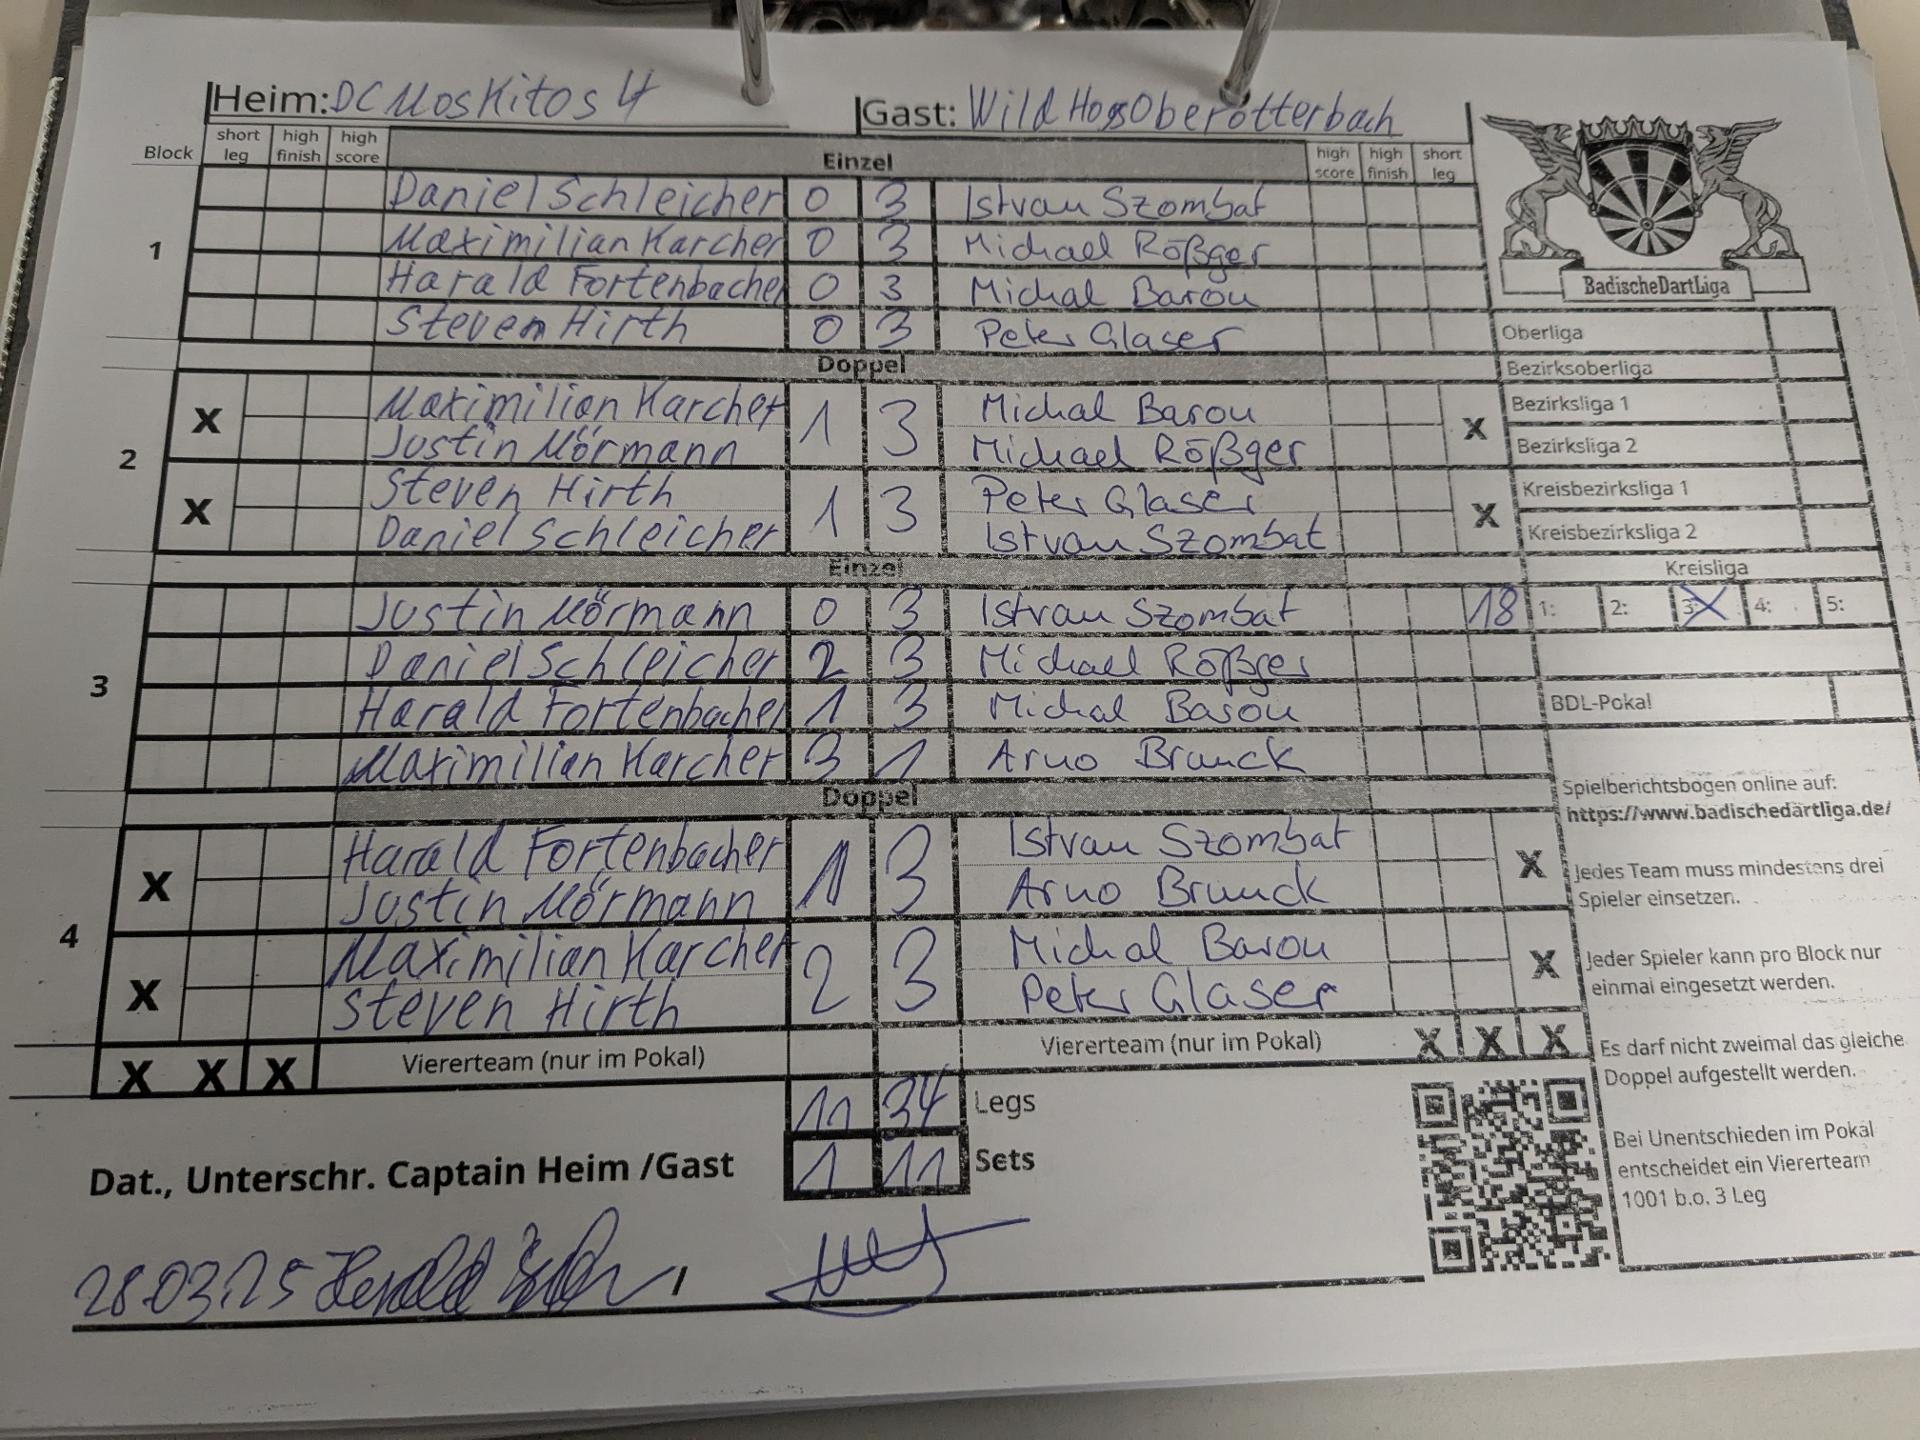 Heim: DC Moskitos 4 Gast: Wild Hogs Oberotterbach
Block short leg high finish high score Einzel high score high finish short leg
1
Daniel Schleicher 0 3 Istvan Szombat
Maximilian Karcher 0 3 Michael Rößger
Harald Fortenbacher 0 3 Michal Barou
Steven Hirth 0 3 Peter Glaser
Doppel
2
X Maximilian Karcher 1 3 Michal Barou X
Justin Mörmann Michael Rößger
X Steven Hirth 1 3 Peter Glaser X
Daniel Schleicher Istvan Szombat
Einzel
3
Justin Mörmann 0 3 Istvan Szombat 18
Daniel Schleicher 2 3 Michael Rößger
Harald Fortenbacher 1 3 Michal Barou
Maximilian Karcher 3 1 Arno Brunck
Doppel
4
X Harald Fortenbacher 1 3 Istvan Szombat X
Justin Mörmann Arno Brunck
X Maximilian Karcher 2 3 Michal Barou X
Steven Hirth Peter Glaser
X X X Viererteam (nur im Pokal) Viererteam (nur im Pokal) X X X
11 34 Legs
1 11 Sets
Dat., Unterschr. Captain Heim /Gast
28.03.25 /
BadischeDartLiga
Oberliga
Bezirksoberliga
Bezirksliga 1
Bezirksliga 2
Kreisbezirksliga 1
Kreisbezirksliga 2
Kreisliga
1: 2: 3: X 4: 5:
BDL-Pokal
Spielberichtsbogen online auf:
https://www.badischedartliga.de/
Jedes Team muss mindestens drei
Spieler einsetzen.
Jeder Spieler kann pro Block nur
einmal eingesetzt werden.
Es darf nicht zweimal das gleiche
Doppel aufgestellt werden.
Bei Unentschieden im Pokal
entscheidet ein Viererteam
1001 b.o. 3 Leg